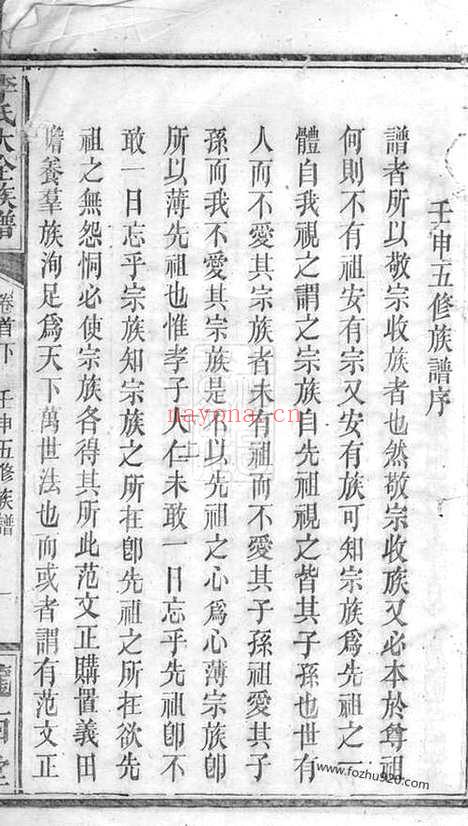 壬申五修族譜序
譜者所以敬宗收族者也然敬宗收族又必本於尊祖
何則不有祖安有宗又安有族可知宗族爲先祖之一
體自我視之謂之宗族自先祖視之皆其子孫也世有
人而不愛其宗族者未有祖而不愛其子孫祖愛其子
孫而我不愛其宗族是不以先祖之心爲心薄宗族卽
所以薄先祖也惟孝子大仁未敢一日忘乎先祖卽不
敢一日忘乎宗族知宗族之所在卽先祖之所在欲先
祖之無怨恫必使宗族各得其所此范文正購置義田
贍養羣族洵足爲天下萬世法也而或者謂有范文正
李氏大全族譜
卷首下
壬申五修族譜
一
nayona.cn
www.fozhu920.com